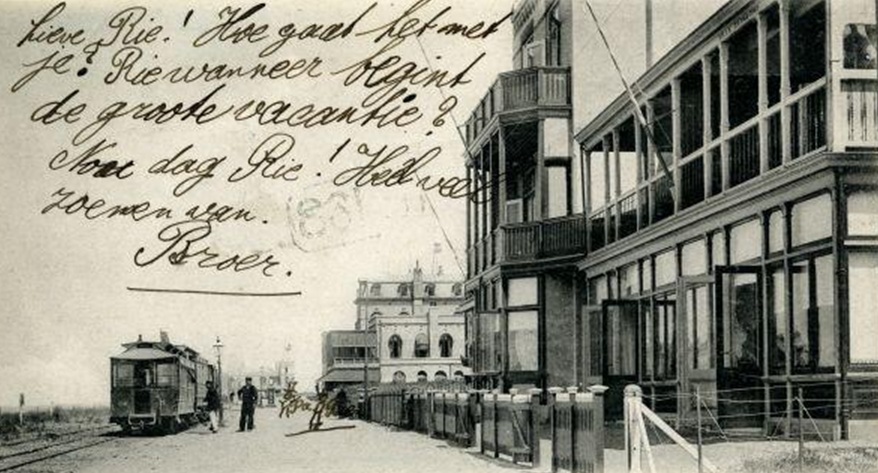 Lieve Rie! Hoe gaat het met
je? Rie wanneer begint
de groote vacantie?
Nou dag Rie! Heel veel
zoenen van.
Broer.